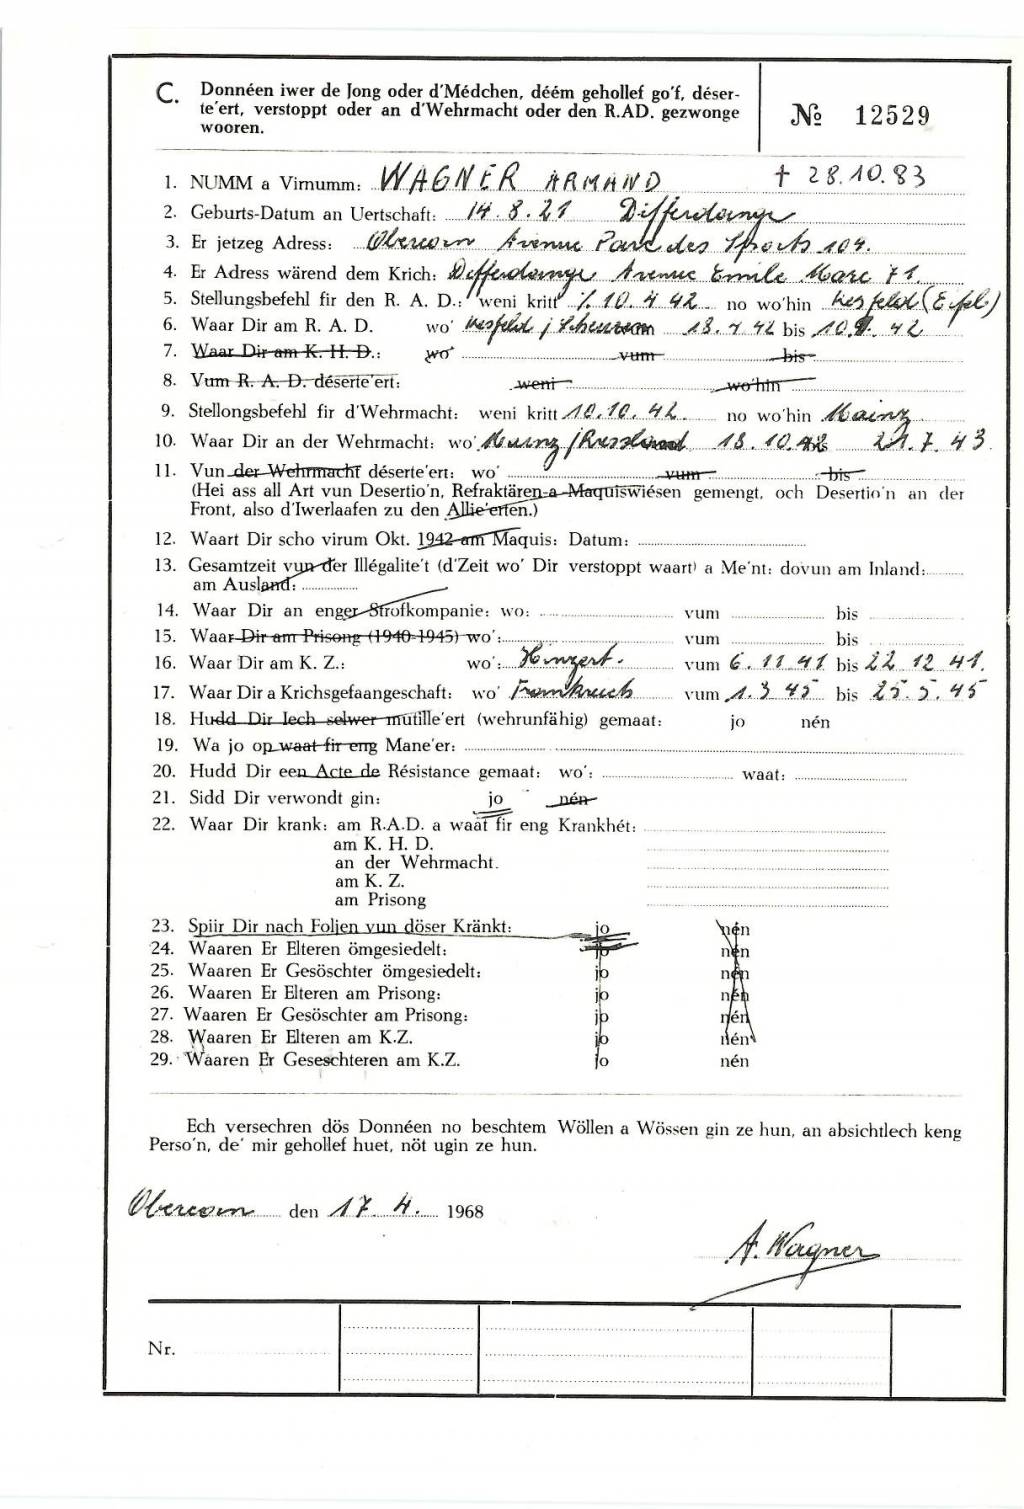 C. Donnéen iwer de Jong oder d'Médchen, déém gehollef go'f, déser-
te'ert, verstoppt oder an d'Wehrmacht oder den R.AD. gezwonge
wooren.
№ 12529
1. NUMM a Virnumm: WAGNER ARMAND † 28.10.83
2. Geburts-Datum an Uertschaft: 14.8.21 Differdange
3. Er jetzeg Adress: Obercorn Avenue Parc des Sports 104.
4. Er Adress wärend dem Krich: Differdange Avenue Emile Marc 71.
5. Stellungsbefehl fir den R. A. D.: weni kritt 10.4.42 no wo'hin (Eifel)
6. Waar Dir am R. A. D. wo' 42 bis 42
7. Waar Dir am K. H. D.: wo' vum bis
8. Vum R. A. D. déserte'ert: weni wo'hin
9. Stellongsbefehl fir d'Wehrmacht: weni kritt 10.10.42. no wo'hin Mainz
10. Waar Dir an der Wehrmacht: wo' Mainz / Russland 13.10.42 21.7.43.
11. Vun der Wehrmacht déserte'ert: wo' vum bis
(Hei ass all Art vun Desertio'n, Refraktären-a Maquiswiésen gemengt, och Desertio'n an der
Front, also d'Iwerlaafen zu den Allie'erten.)
12. Waart Dir scho virum Okt. 1942 am Maquis: Datum:
13. Gesamtzeit vun der Illégalite't (d'Zeit wo' Dir verstoppt waart) a Me'nt: dovun am Inland:
am Ausland:
14. Waar Dir an enger Strofkompanie: wo: vum bis
15. Waar Dir am Prisong (1940-1945) wo': vum bis
16. Waar Dir am K. Z.: wo': Hinzert. vum 6.11.41 bis 22.12.41.
17. Waar Dir a Krichsgefaangeschaft: wo' Frankreich vum 1.3.45 bis 25.5.45
18. Hudd Dir Iech selwer mutille'ert (wehrunfähig) gemaat: jo nén
19. Wa jo op waat fir eng Mane'er:
20. Hudd Dir een Acte de Résistance gemaat: wo': waat:
21. Sidd Dir verwondt gin: jo nén
22. Waar Dir krank: am R.A.D. a waat fir eng Krankhét:
am K. H. D.
an der Wehrmacht.
am K. Z.
am Prisong
23. Spiir Dir nach Foljen vun döser Kränkt: jo nén
24. Waaren Er Elteren ömgesiedelt: jo nén
25. Waaren Er Gesöschter ömgesiedelt: jo nén
26. Waaren Er Elteren am Prisong: jo nén
27. Waaren Er Gesöschter am Prisong: jo nén
28. Waaren Er Elteren am K.Z. jo nén
29. Waaren Er Geseschteren am K.Z. jo nén
Ech versechren dös Donnéen no beschtem Wöllen a Wössen gin ze hun, an absichtlech keng
Perso'n, de' mir gehollef huet, nöt ugin ze hun.
Obercorn den 17.4. 1968
A. Wagner
Nr.